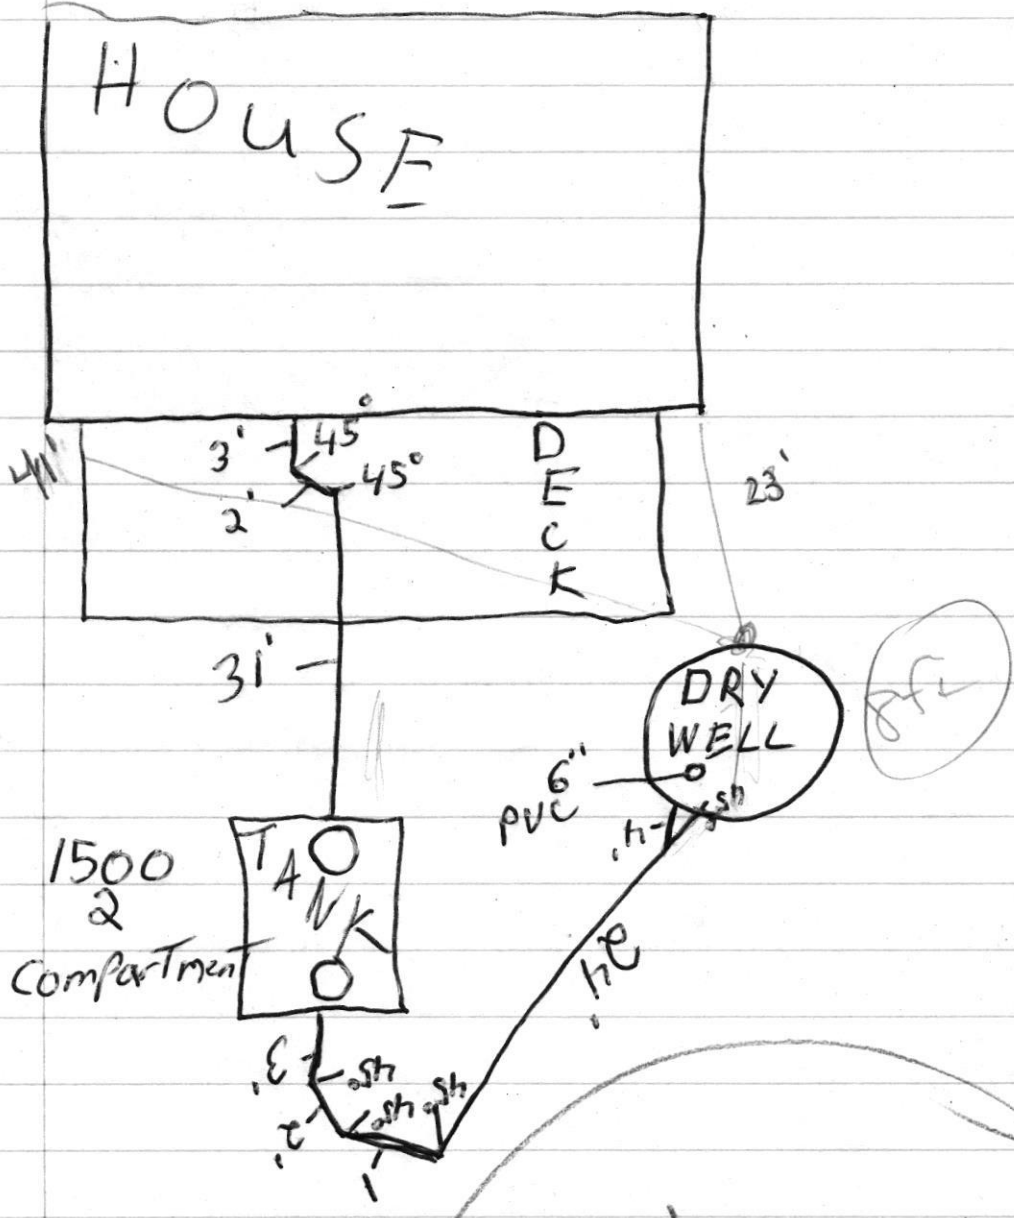 HOUSE
3'
45°
45°
2'
DECK
41'
23'
31'
DRY
WELL
6"
PVC
4'
45
1500
2
Compartment
TANK
24'
3'
45°
2'
45°
45°
1